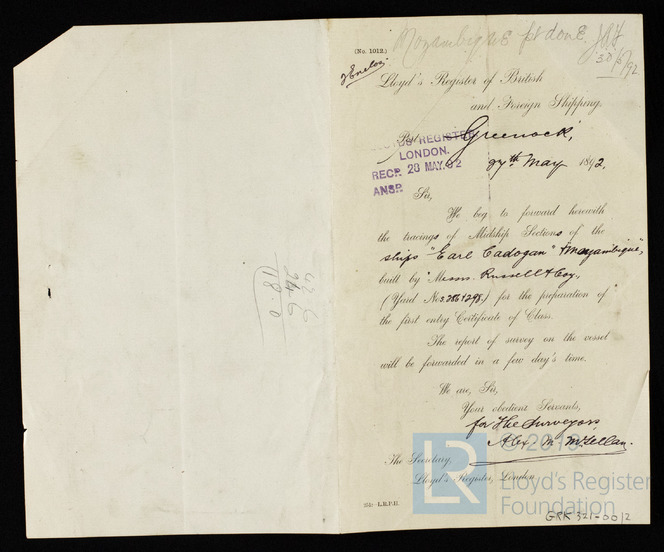 (No. 1012.)
Mozambique pt done. JRH
30/5/92
2 Enclos
Lloyd's Register of British
and Foreign Shipping,
Port Greenock,
27th May 1892,
LLOYD'S REGISTER
LONDON.
RECP. 28 MAY. 92
ANSP.
Sir,
We beg to forward herewith
the tracings of Midship Sections of the
ships "Earl Cadogan" & "Mozambique",
built by Messrs. Russell & Coy,
(Yard Nos. 286 & 298,) for the preparation of
the first entry Certificate of Class.
The report of survey on the vessel
will be forwarded in a few day's time.
We are, Sir,
Your obedient Servants,
for The Surveyors,
Alex. M. McLellan.
The Secretary,
Lloyd's Register, London.
L.R.P.H.
LR
© 2016
Lloyd's Register
Foundation
GRK 321-0012
118.0